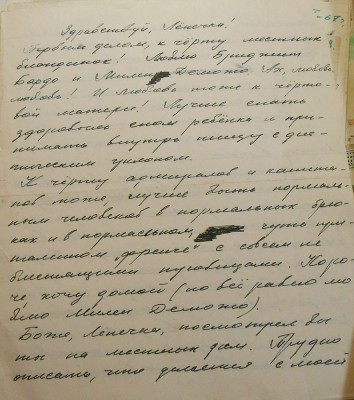 Здравствуй, Лёлечка!
Первым делом, к чёрту местных
блондинок! Люблю Бриджит
Бардо и Милен Демонжо. Ах, любовь,
любовь! И любовь тоже к чёрто-
вой матери! Лучше спать
здоровым сном ребёнка и при-
нимать внутрь пищу с дие-
тическим уклоном.
К чёрту адмиралов и капита-
нов тоже, лучше быть нормаль-
ным человеком в нормальных брю-
ках и в нормальном, чуть при-
таленном „френче" с совсем не
блестящими пуговицами. Коро-
че, хочу домой (но всё равно лю-
блю Милен Демонжо).
Боже, Лёлечка, посмотрел бы
ты на местных дам. Трудно
описать, что делается с моей